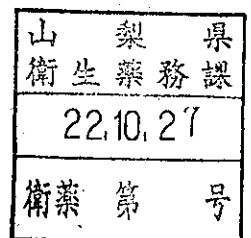 山梨県
衛生薬務課
22.10.27
衛薬第号